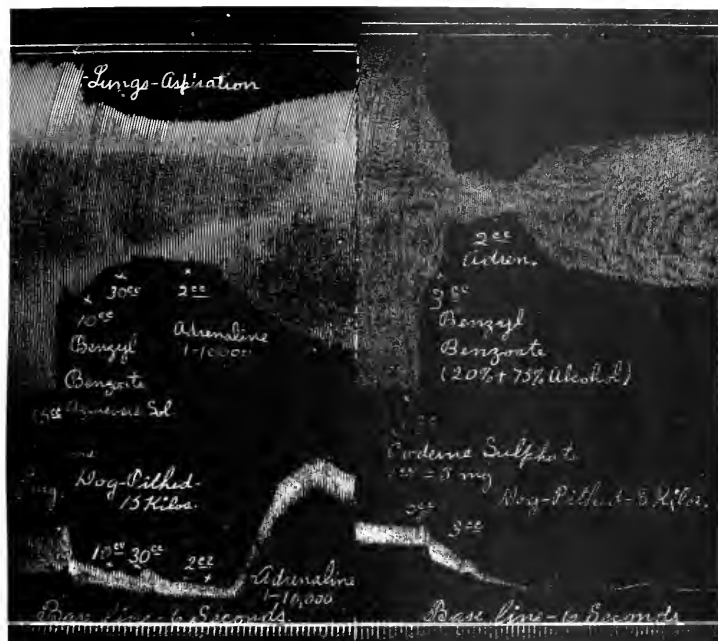 Lungs-Aspiration
30cc
10cc
Benzyl
Benzoate
Aqueous Sol
2cc
Adrenaline
1-10,000
Dog-Pithed-
15 Kilos.
10cc 30cc 2cc
Adrenaline
1-10,000
Base line-6 Seconds.
2cc
Adren.
Benzyl
Benzoate
(20% + 75% Alcohol)
Codeine Sulphate
Dog-Pithed-8 Kilos.
3cc
Base line-6 Seconds